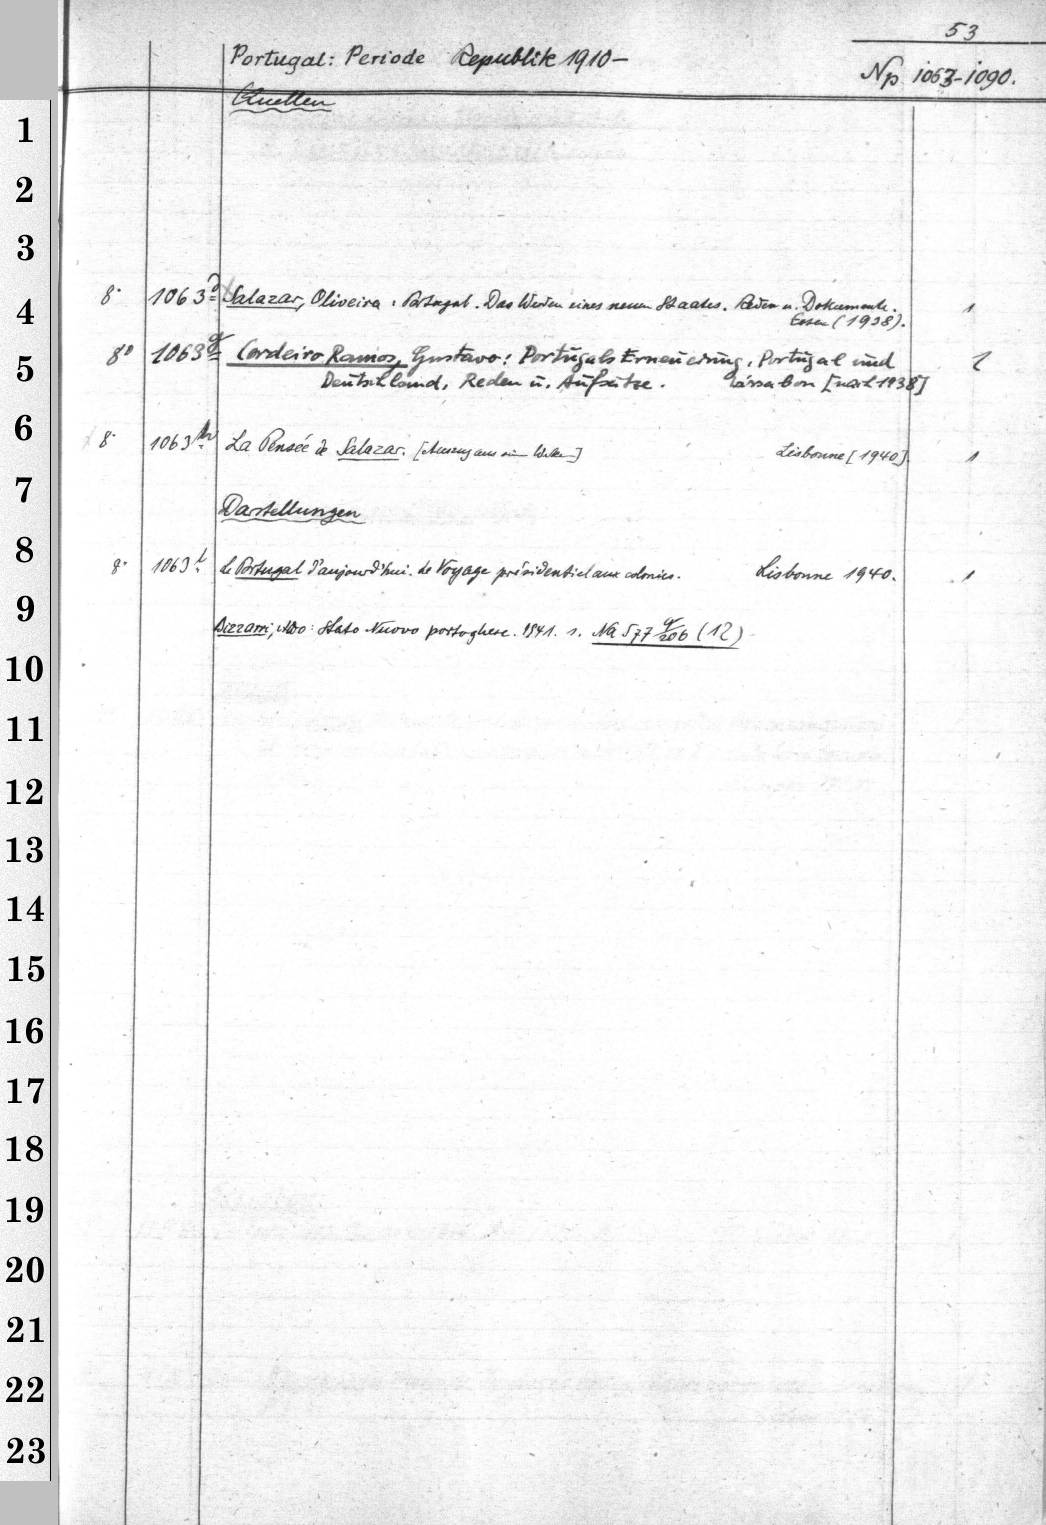 53
Portugal: Periode Republik 1910–
Np 1063-1090.
Quellen
1
2
3
4
8° 1063 Salazar, Oliveira: Portugal. Das Werden eines neuen Staates. Reden u. Dokumente. 1
Essen (1938).
5
8° 1063 g Cordeiro Ramos, Gustavo: Portugals Erneuerung, Portugal und 1
Deutschland, Reden u. Aufsätze. Lissabon [nach 1938]
6
8° 1063 h La Pensée de Salazar. [Auszug aus Werken] Lisbonne [1940]. 1
7
Darstellungen
8
8° 1063 Le Portugal d'aujourd'hui. Le Voyage présidentiel aux colonies. Lisbonne 1940. 1
9
Bizzarri, Aldo: Stato Nuovo portoghese. 1941. s. Na 577 g/206 (12)
10
11
12
13
14
15
16
17
18
19
20
21
22
23